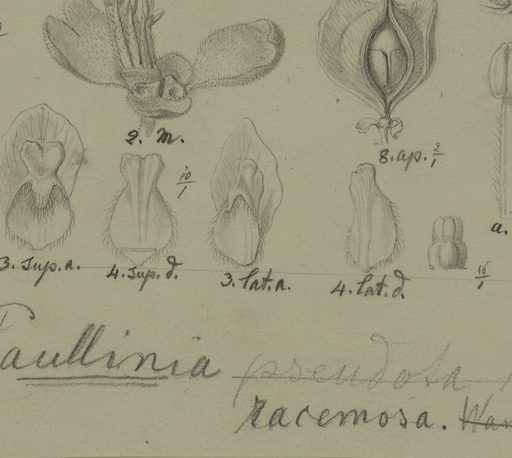 2. m.
8. ap. 2/1
10/1
3. sup. a.
4. sup. d.
3. lat. a.
4. lat. d.
a.
16/1
Paullinia pseudota
racemosa. Wa